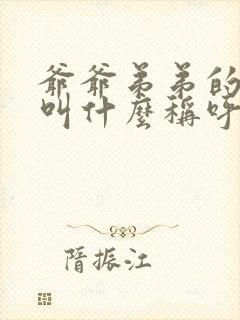 爺爺弟弟的
叫什麼稱呼
隋振江